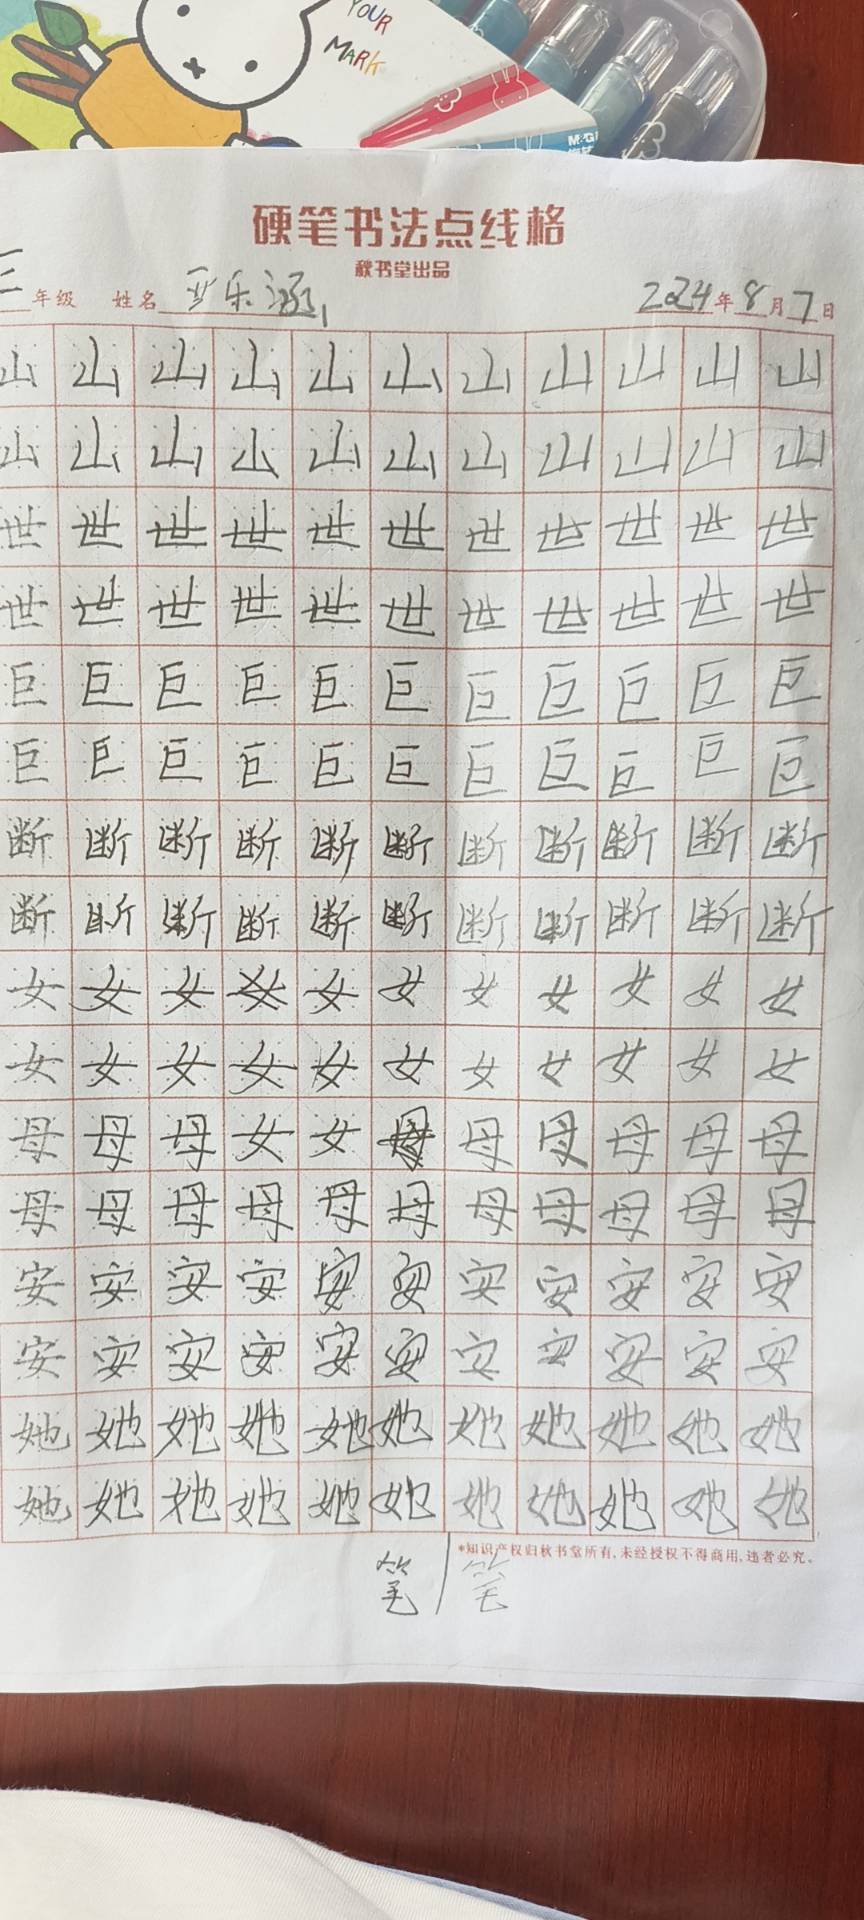 YOUR
MARK
M&G
硬笔书法点线格
秋书堂出品
三年级 姓名 乐涵 2024年8月7日
山山山山山山山山山山山
山山山山山山山山山山山
世世世世世世世世世世世
世世世世世世世世世世世
巨巨巨巨巨巨巨巨巨巨巨
巨巨巨巨巨巨巨巨巨巨巨
断断断断断断断断断断断
断断断断断断断断断断断
女女女女女女女女女女女
女女女女女女女女女女女
母母母女女母母母母母母
母母母母母母母母母母母
安安安安安安安安安安安
安安安安安安安安安安安
她她她她她她她她她她她
她她她她她她她她她她她
*知识产权归秋书堂所有,未经授权不得商用,违者必究。
笔 笔